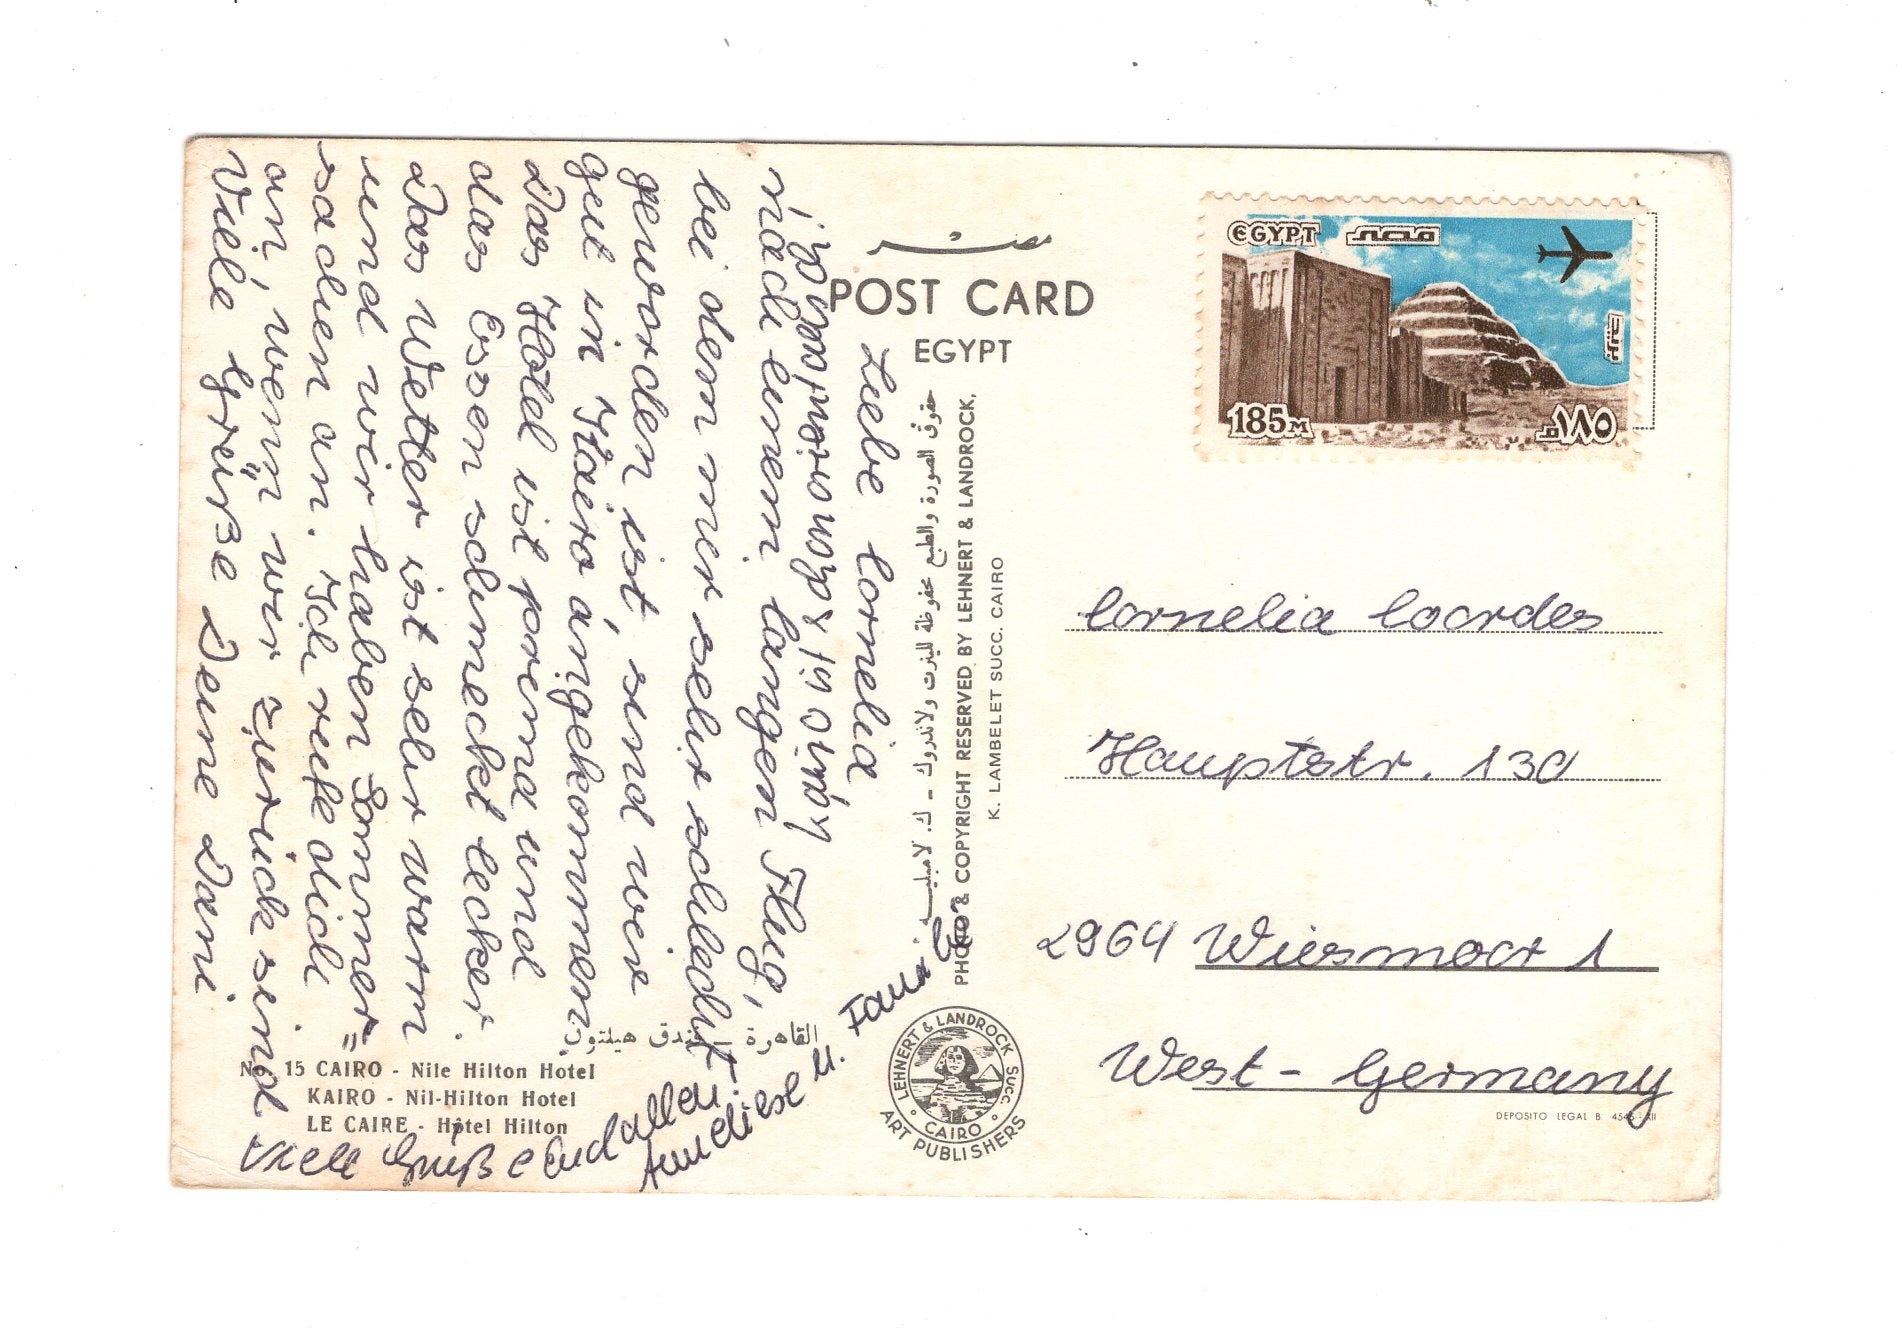 مصر
POST CARD
EGYPT
EGYPT مصر
بريد جوى
185M ١٨٥م
حقوق الصورة والطبع محفوظة للينرت ولاندروك - ك. لامبليه
PHOTO & COPYRIGHT RESERVED BY LEHNERT & LANDROCK,
K. LAMBELET SUCC. CAIRO
Liebe Cornelia
nach einem langen Flug,
bei dem mir sehr schlecht
geworden ist, sind wir
gut in Kairo angekommen
Das Hotel ist prima und
das Essen schmeckt lecker
Das Wetter ist sehr warm
und wir haben Sommer=
sachen an. Ich rufe dich
an, wenn wir zurück sind
Viele Grüße Deine Dani
Viele Grüße an alle
u. Fam.
Cornelia Coordes
Hauptstr. 130
2964 Wiesmoor 1
West - Germany
القاهرة - فندق هيلتون
No 15 CAIRO - Nile Hilton Hotel
KAIRO - Nil-Hilton Hotel
LE CAIRE - Hôtel Hilton
LEHNERT & LANDROCK SUCC.
CAIRO
ART PUBLISHERS
DEPOSITO LEGAL B.